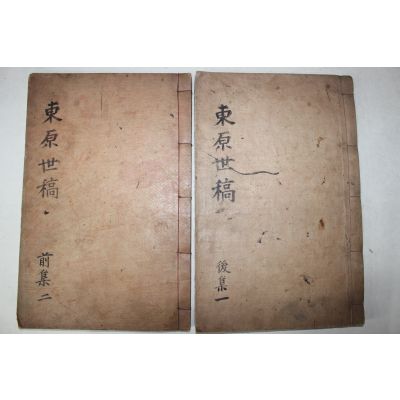 東原世稿
前集 二
東原世稿
後集 一